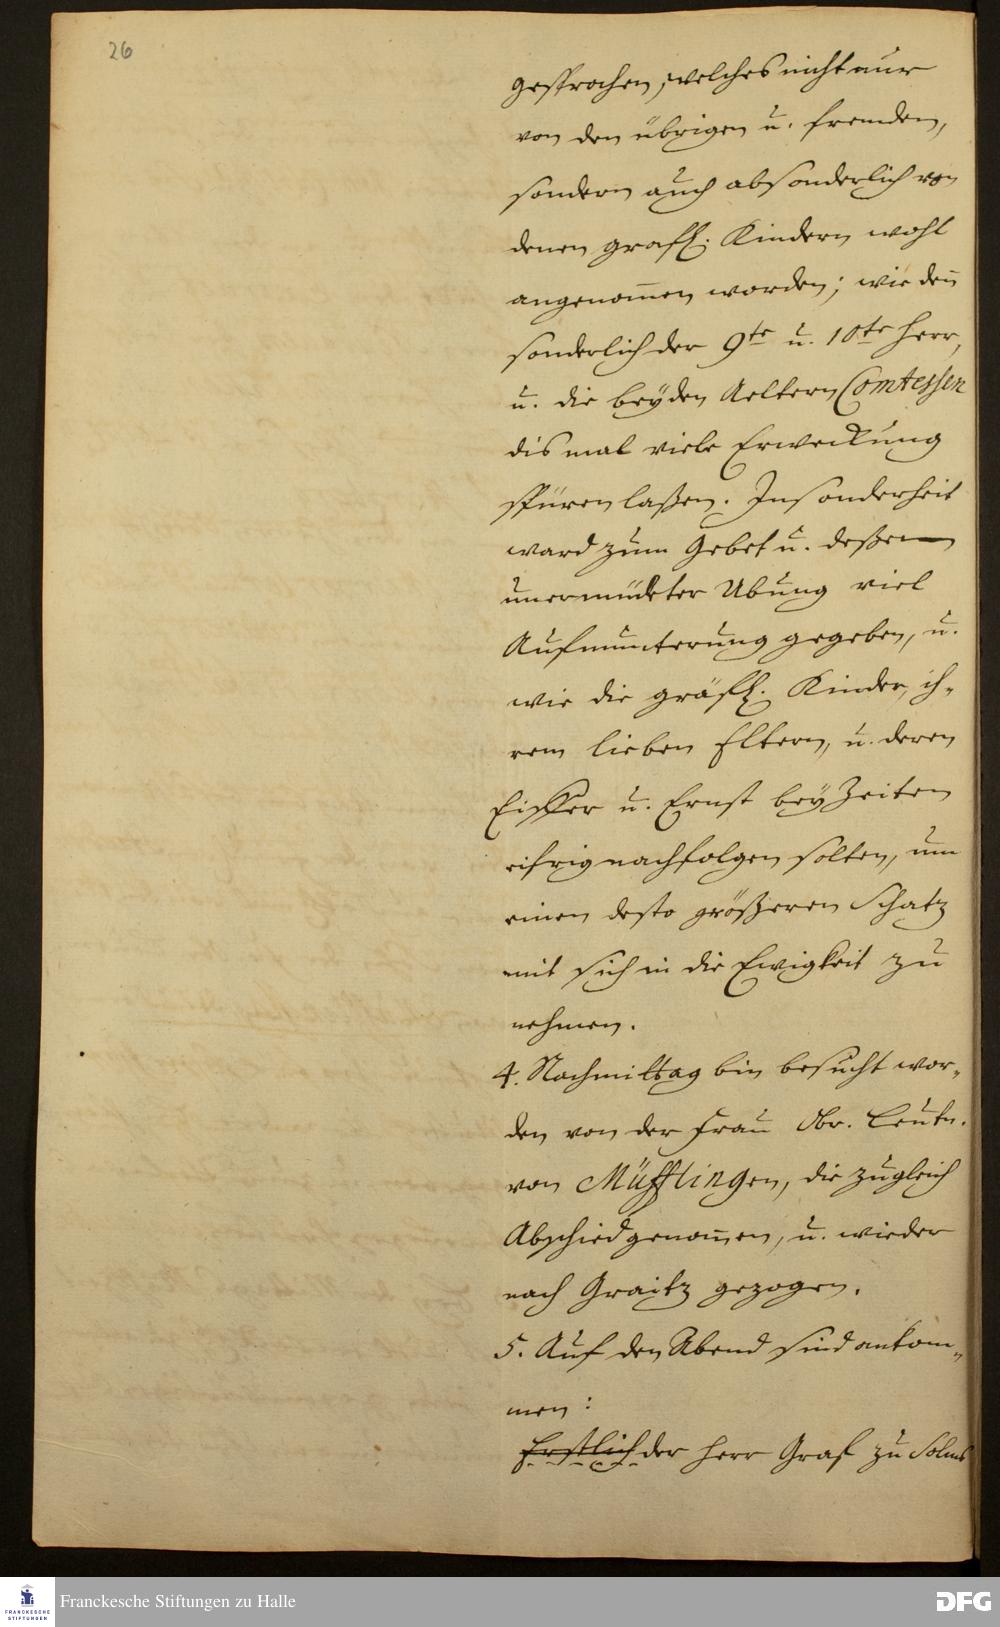 26
gesprochen, welches nicht nur
von den übrigen u. fremden,
sondern auch absonderlich von
denen gräfl. Kindern wohl
angenom̄en worden; wie den̄
sonderlich der 9te u. 10te Herr,
u. die beyden Aeltern Comtessen
dismal viele Erweckung
spüren laßen. Insonderheit
ward zum Gebet u. deßen
unermüdeter Ubung viel
Aufmunterung gegeben, u.
wie die gräfl. Kinder, ih-
rem lieben Eltern, u. deren
Eiffer u. Ernst bey Zeiten
eifrig nachfolgen solten, um
einen desto größeren Schatz
mit sich in die Ewigkeit zu
nehmen.
4. Nachmittag bin besucht wor-
den von der Frau Obr. Leutn.
von Müfflingen, die zugleich
Abschied genom̄en, u. wieder
nach Graitz gezogen.
5. Auf den Abend sind ankom-
men:
Erstlich der Herr Graf zu Solms
Franckesche Stiftungen zu Halle
FRANCKESCHE
STIFTUNGEN
DFG